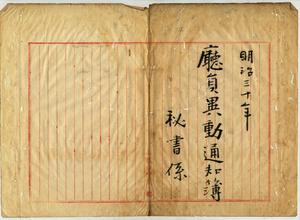 明治三十年
廳員異動通知簿
秘書係